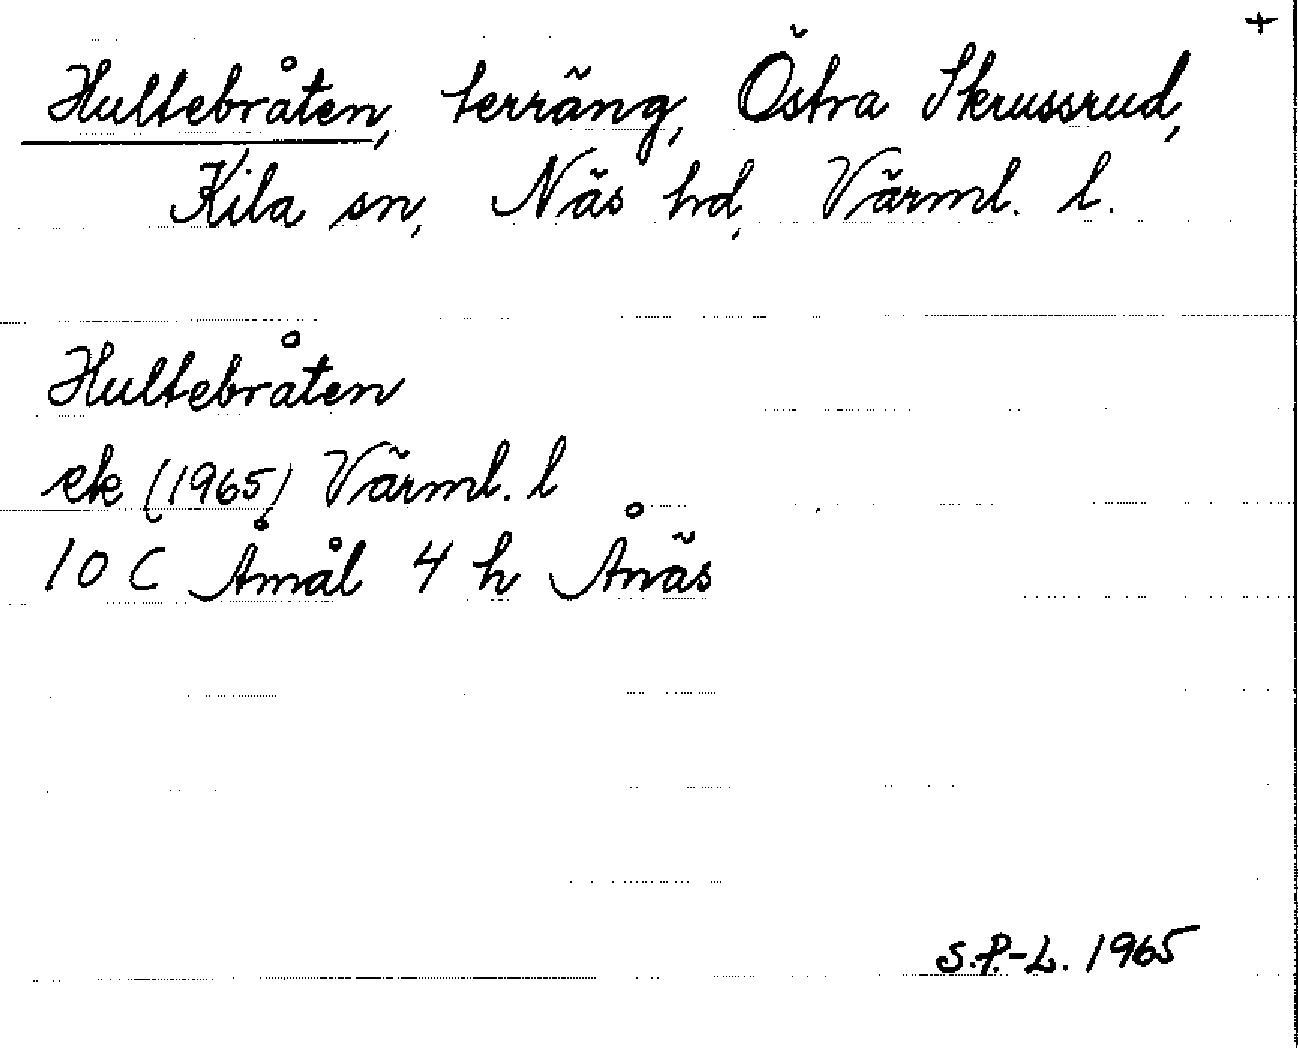 +
Hultebråten, terräng, Östra Skrussrud,
Kila sn, Näs hd, Värml. l.
Hultebråten
ek (1965) Värml. l
10 C Åmål 4 h Ånäs
S.P.-L. 1965